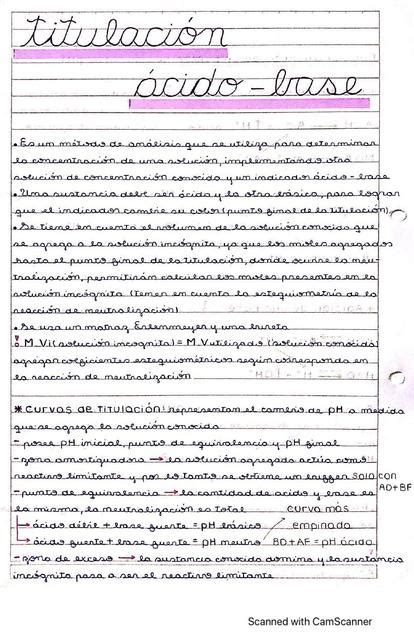 titulación
ácido - base
• Es un método de análisis que se utiliza para determinar
la concentración de una solución, implementando otra
solución de concentración conocida y un indicador ácido - base
• Una sustancia debe ser ácida y la otra básica, para lograr
que el indicador cambie su color (punto final de la titulación).
• Se tiene en cuenta el volumen de la solución conocida que
se agrega a la solución incógnita, ya que los moles agregados
hasta el punto final de la titulación, donde ocurre la neu-
tralización, permitirán calcular los moles presentes en la
solución incógnita (tener en cuenta la estequiometría de la
reacción de neutralización)
• Se usa un matraz Erlenmeyer y una bureta
! M.Vi (solución incognita) = M.Vutilizado (solución conocida)
agregar coeficientes estequiométricos según corresponda en
la reacción de neutralización
* CURVAS DE TITULACIÓN: representan el cambio de pH a medida
que se agrega la solución conocida
- posee pH inicial, punto de equivalencia y pH final
- zona amortiguadora → la solución agregada actúa como
reactivo limitante y por lo tanto se obtiene un buffer SOLO CON
AD+BF
- punto de equivalencia → la cantidad de ácido y base es
la misma, la neutralización es total
curva más
empinada
→ ácido débil + base fuerte = pH básico
→ ácido fuerte + base fuerte = pH neutro
BD+AF = pH ácido
- zona de exceso → la sustancia conocida domina y la sustancia
incógnita pasa a ser el reactivo limitante
Scanned with CamScanner